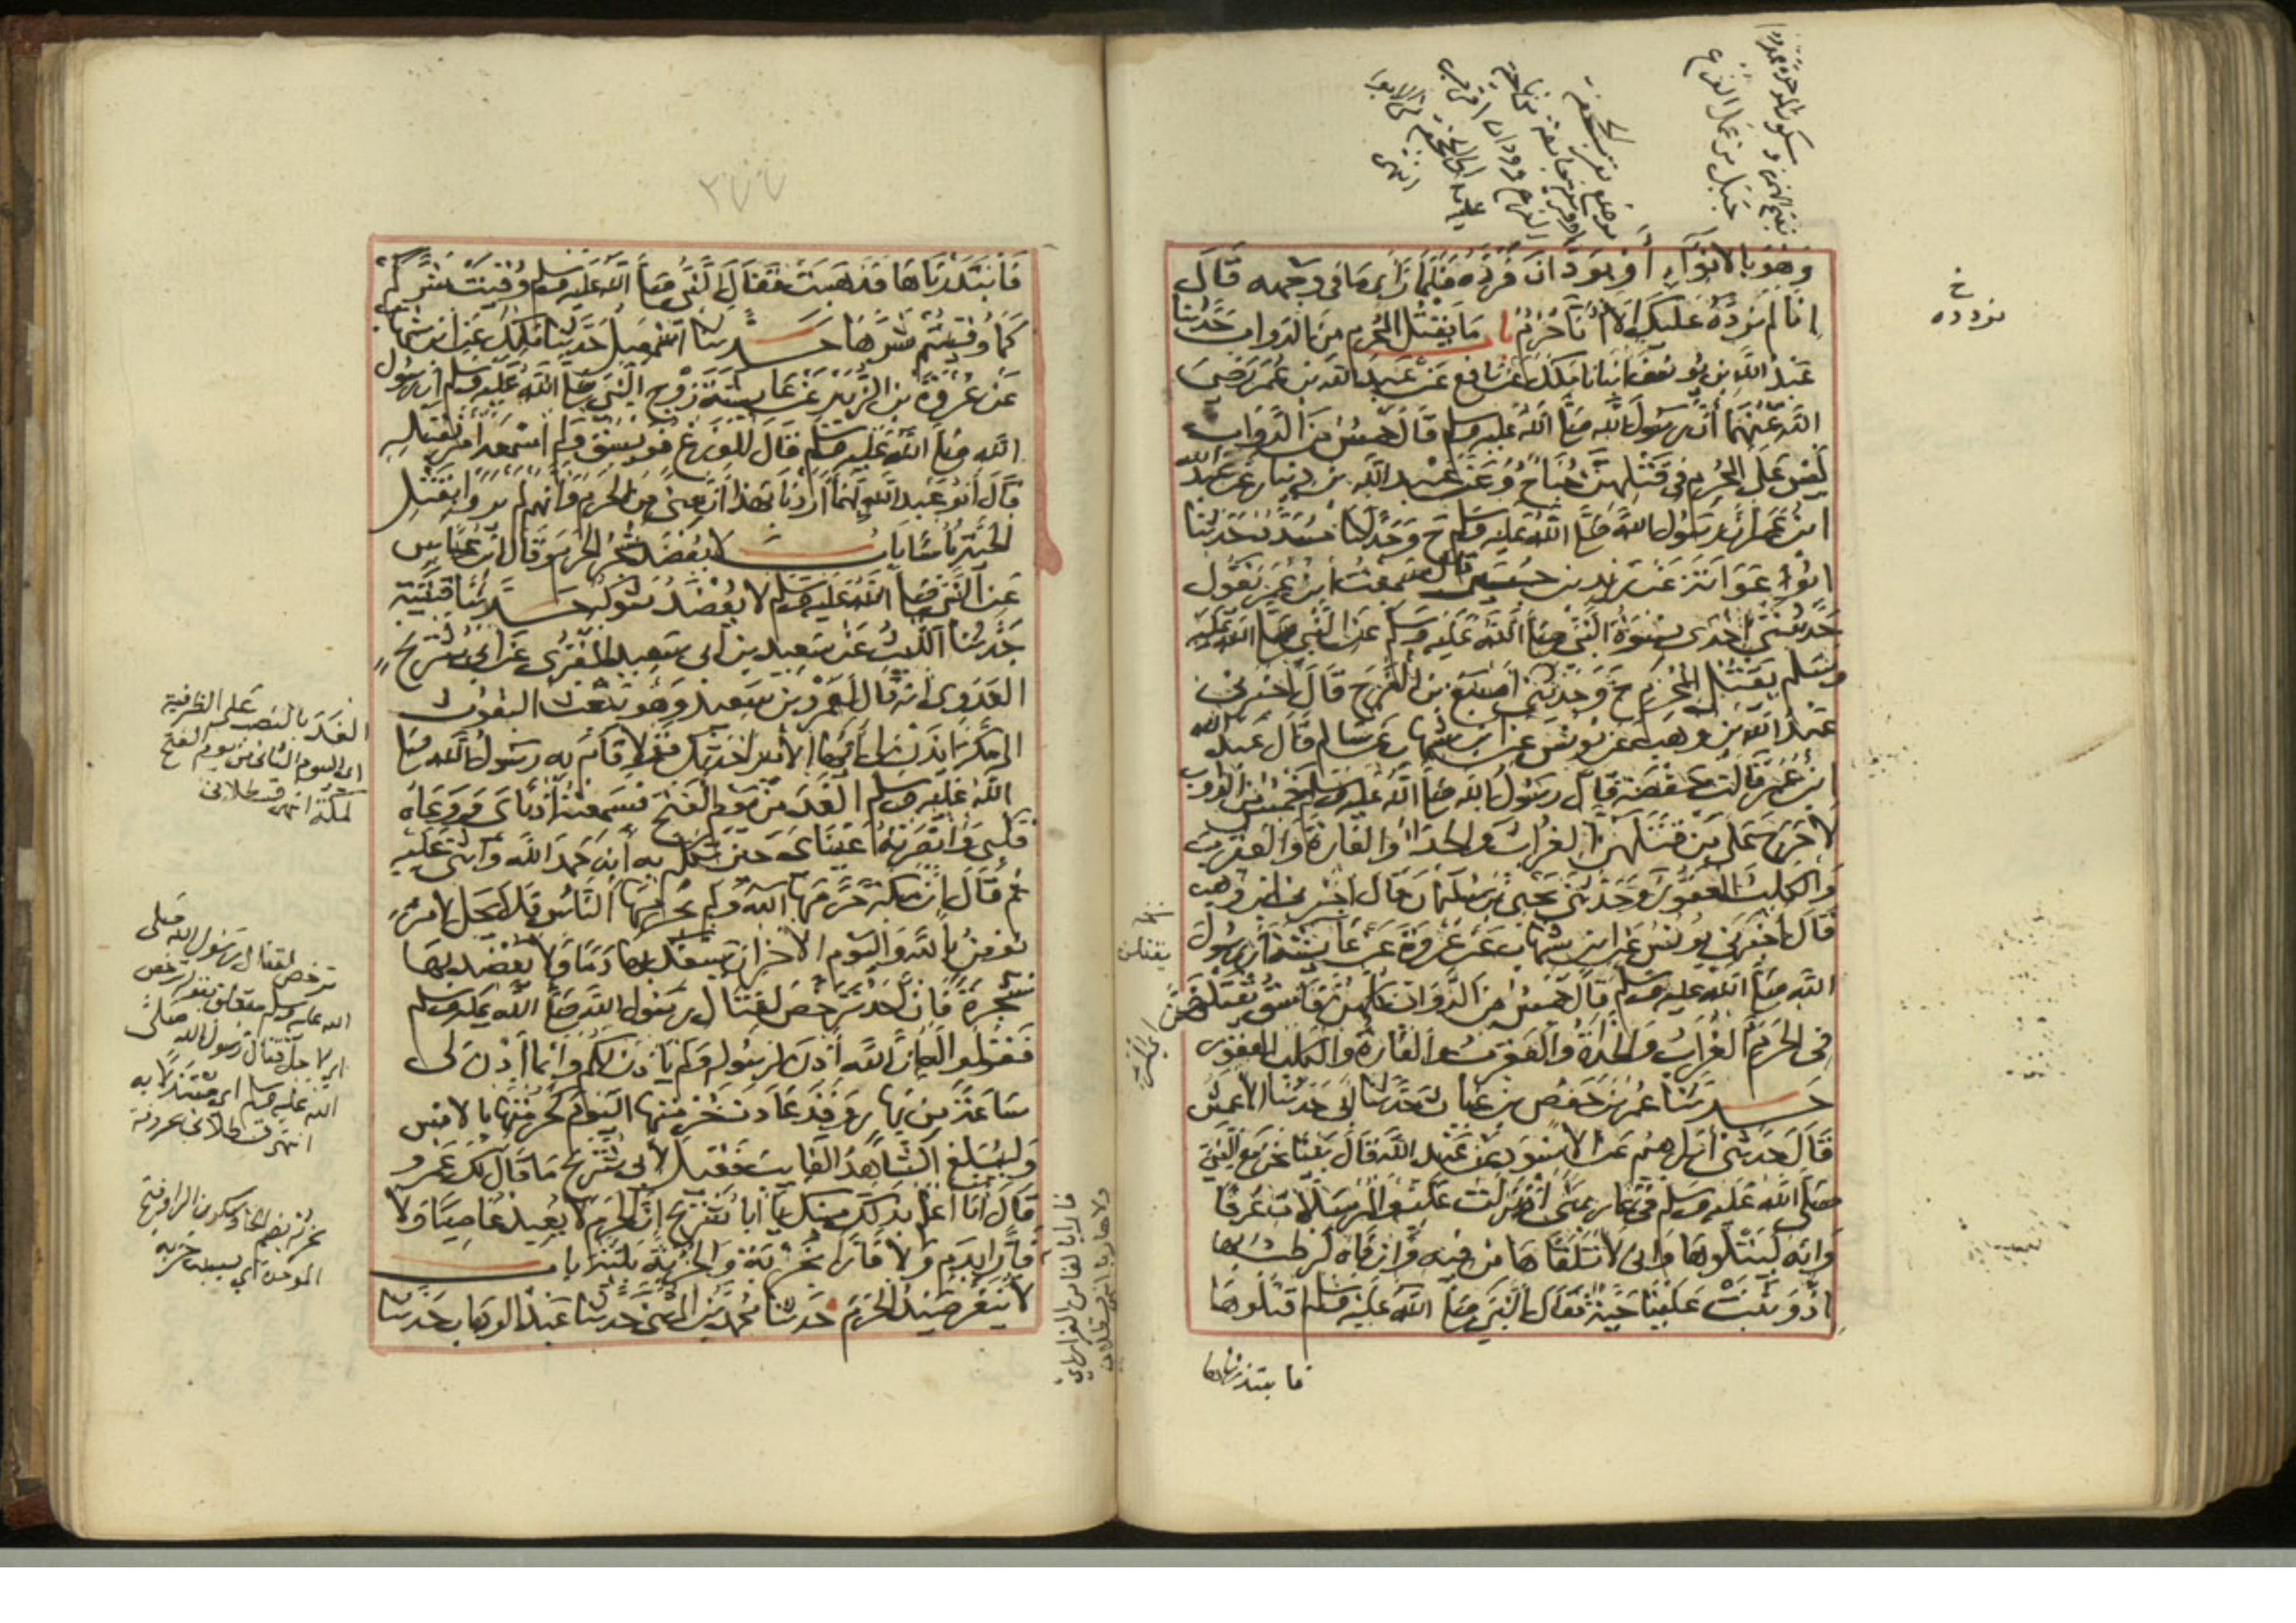 وَهُوَ بِالابْوَآءِ أَوْ بِوَدَّانَ فَرَدَّهُ فَلَمَّا رَأى مَا فى وجهه قَالَ
إنا لم نردَّهُ عَلَيكَ إلاَّ أنَّا حُرُمٌ بَا مَا يَقْتُلُ المُحْرِم مِنَ الدوابِّ حَدَّثنَا
عَبْدُ اللهِ بن يُوسُفَ انبأنا مَالِكٌ عَنْ نافع عَنْ عَبْدِ الله بن عُمَرَ رَضِيَ
الله عَنْهُمَا أَنَّ رَسُولَ الله صَلَّى اللهُ عَلَيهِ وسلم قَالَ خمسٌ مِنَ الدَّوَابِّ
لَيْسَ عَلَى المُحْرِم فِى قَتْلِهِنَّ جُنَاحٌ وَعَنْ عَبْدِ اللهِ بن دِينَارٍ عَنْ عَبْدِ الله
ابن عُمَرَ أنَّ رَسُولَ الله صَلَّى اللهُ عَلَيهِ وسلم ح وَحَدَّثنَا مُسَدَّدٌ حَدَّثنَا
ابُو عَوَانَةَ عَنْ زيد بن جُبَيْر قال سَمِعْتُ ابنَ عُمَرَ يَقُولُ
حَدَّثَتْنِى إحْدَى نِسْوَةِ النَّبِىِّ صَلَّى اللهُ عَلَيهِ وَسَلم عَنِ النَّبِىِّ صَلَّى اللهُ عليه
وسَلم يَقْتُلُ المُحْرِم ح وَحَدَّثَنِى أصْبَغُ بن الفَرَج قَالَ أخبرنى
عَبْدُ اللهِ بن وهبٍ عَنْ يُونُسَ عَن ابن شِهَابٍ عَنْ سَالِم قَالَ عَبْدُ الله
ابنُ عُمَرَ قَالت حَفْصَة قَالَ رَسُولُ الله صَلَّى اللهُ عليه وسلم خَمْسٌ من الدواب
لا حَرَجَ عَلَى مَنْ قَتَلَهُنَّ الغُرَابُ وَالحِدَاةُ وَالفَارَةُ وَالعَقْرَبُ
وَالكَلْبُ العَقُورُ وَحَدَّثَنِى يَحْيَى بن سُلَيْمَانَ قَالَ أخبرنى ابن وَهب
قَالَ أخْبَرَنِى يُونُسُ عَن ابن شِهَابٍ عَنْ عُرْوَةَ عَنْ عَايِشَةَ أنَّ رَسُولَ
الله صَلَّى اللهُ عليه وسلم قَالَ خمسٌ مِن الدَّوَابِّ كلهن فَاسِقٌ يَقْتُلُهُنَّ
فِى الحَرَم الغُرَابُ وَالحِدَاةُ وَالعَقْرَبُ والفَارَةُ وَالكلْبُ العقور
حَدَّثَنَا عُمَرُ بن حَفْص بن غِيَاثٍ حَدَّثَنَا أبى حَدَّثَنَا الأعمش
قَالَ حَدَّثَنِى إبرَاهِيم عَن الأَسْوَدِ عَنْ عَبْدِ الله قَالَ بَيْنَا نَحْنُ مَعَ النَّبِىِّ
صَلَّى اللهُ عَلَيهِ وَسَلم فى غار بِمِنًى إذْ نَزَلَتْ عَلَيْهِ وَالمُرْسَلَاتِ عُرْفًا
وَانه لَيَتْلُوهَا وَانى لأَتَلَقَّاهَا مِنْ فِيهِ وَإنَّ فَاهُ لَرَطْبٌ بِهَا
إذْ وَثَبَتْ عَلَيْنَا حَيَّةٌ فَقَالَ النَّبِىُّ صَلَّى اللهُ عَلَيهِ وَسَلم اقتُلُوهَا
فابتدرناها
خ
نردده
يقتلن
فَابْتَدَرْنَاهَا فَذَهَبَتْ فَقَالَ النَّبِىُّ صَلَّى اللهُ عَلَيهِ وسلم وُقِيَتْ شَرَّكُم
كَمَا وُقِيتُمْ شَرَّهَا حَدَّثنَا إسْمَعِيلُ حَدَّثَنَا مَالِكٌ عَن ابن شِهَاب
عَنْ عُرْوَةَ بن الزُّبَيْرِ عَنْ عَايِشَةَ زَوْج النَّبِىِّ صَلَّى اللهُ عَلَيهِ وَسلم أن رسُولَ
الله صَلَّى اللهُ عَلَيهِ وسلم قَالَ للوَزَغ فُوَيْسِقٌ وَلَم أسْمَعْه أمَرَ بقتلِهِ
قَالَ أبُو عَبْدِ الله إنمَا أرَدْنَا بهَذَا أنَّ مِنًى مِنَ الحَرَم وَأنهم لم يرَوْا بِقَتْلِ
الحَيَّةِ بَأسًا بَابٌ لا يُعْضَدُ شَجَرُ الحَرَم وَقَالَ ابن عَبَّاسٍ
عَن النَّبِىِّ صَلَّى اللهُ عَلَيهِ وسلم لا يُعْضَدُ شَوْكُهُ حَدَّثَنَا قُتَيْبَة
حَدَّثنَا اللَّيْثُ عَنْ سَعِيدِ بن أبى سَعِيدٍ المقبُرى عَنْ أبى شُرَيْحٍ
العَدَوِى أنه قَالَ لِعَمْرِو بن سَعِيدٍ وَهُوَ يَبْعَثُ البُعُوثَ
الى مَكَّةَ ائْذَنْ لِى أيُّهَا الأمِيرُ أحَدِّثْكَ قَوْلاً قَامَ به رسُولُ الله صَلَّى
الله عَلَيهِ وَسَلم الغَدَ مِنْ يَوْم الفَتْح فَسَمِعَتْهُ أذُنَاىَ وَوَعَاهُ
قَلْبِى وَأبْصَرَتْهُ عَيْنَاىَ حِينَ تَكَلَّمَ بِهِ أنه حَمِدَ الله وَأثْنَى عَلَيهِ
ثُم قَالَ إنَّ مَكَّةَ حَرَّمَهَا اللهُ وَلَم يُحَرِّمْهَا النَّاسُ فَلاَ يَحِلُّ لامرئ
يُؤمِنُ باللهِ وَاليَوْم الآخِرِ أنْ يَسْفِكَ بِهَا دَمًا وَلا يَعْضُدَ بِهَا
شَجَرَةً فَإنْ أحَدٌ تَرَخَّصَ لِقِتَالِ رَسُولِ اللهِ صَلَّى اللهُ عَلَيهِ وسلم
فَقُولُوا له إنَّ اللهَ أذِنَ لِرَسُولِهِ وَلَم يَأذَنْ لكم وَإنما أذِنَ لى
سَاعَةً مِنْ نَهَارٍ وَقَدْ عَادَتْ حُرْمَتُهَا اليَوْمَ كَحُرْمَتِهَا بالأَمْسِ
وَليُبَلِّغ الشَّاهِدُ الغَايِبَ فَقِيلَ لأَبِى شُرَيْح مَا قَالَ لَكَ عَمْرو
قَالَ أنَا أعْلَمُ بِذَلِكَ مِنْكَ يَا أبَا شُرَيْح إنَّ الحَرَمَ لا يُعِيذُ عَاصِيًا وَلا
فَارًّا بِدَمٍ وَلا فَارًّا بِخُرْبَةٍ وَالخُرْبَةُ بَلِيَّة بَابُ
لا يُنَفَّرُ صَيْدُ الحَرَم حَدَّثَنَا مُحَمَّدُ بنُ المُثَنَّى حَدَّثَنَا عَبْدُ الوهَابِ حَدَّثَنَا
الغَدَ بالنصب على الظرفية
اى اليوم الثانى من يوم الفتح
لمكة انتهى قسطلانى
ترخص لقتال رسول الله صلى
الله عليه وسلم متعلق بقوله ترخص
اى لاجل قتال رسول الله صلى
الله عليه وسلم اى مستدلا به
انتهى قسطلانى بحروفه
بخربة بضم الخا وسكون الرا وفتح
الموحدة اى بسبب خربة